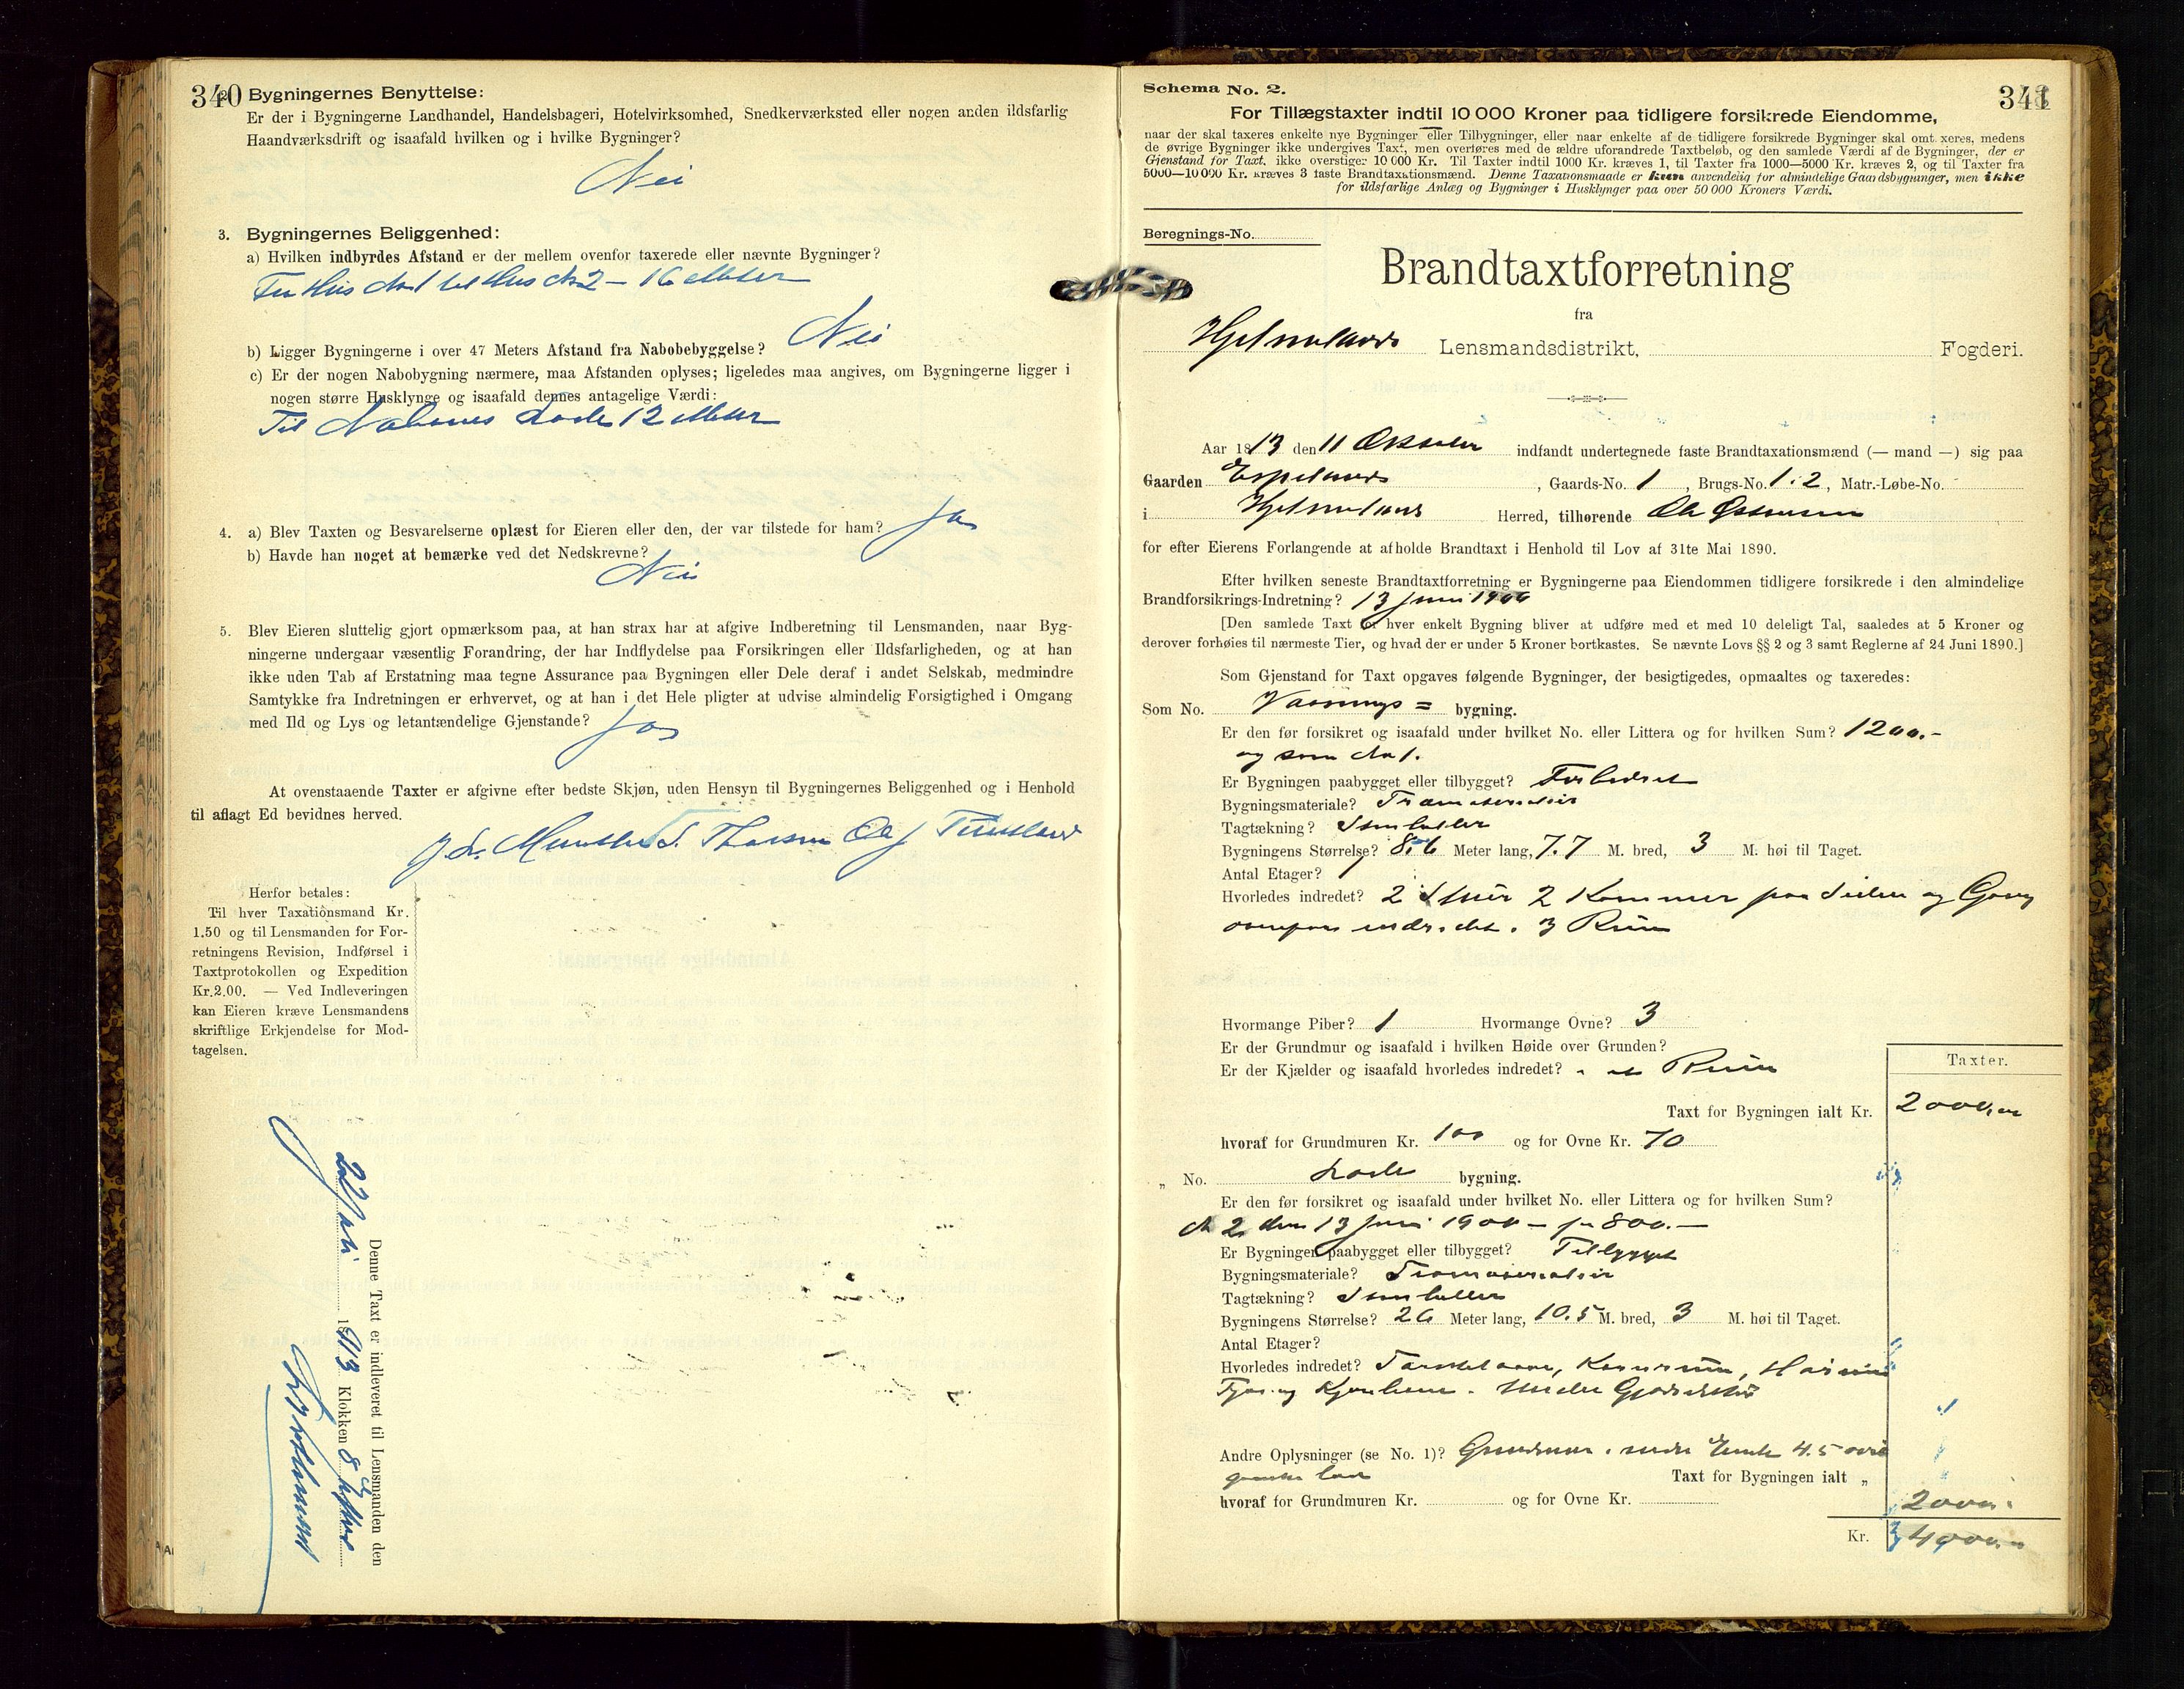 340
2. Bygningernes Benyttelse:
Er der i Bygningerne Landhandel, Handelsbageri, Hotelvirksomhed, Snedkerværksted eller nogen anden ildsfarlig
Haandværksdrift og isaafald hvilken og i hvilke Bygninger?
Nei
3. Bygningernes Beliggenhed:
a) Hvilken indbyrdes Afstand er der mellem ovenfor taxerede eller nævnte Bygninger?
Fra Hus No 1 til Hus No 2 – 16 Meter
b) Ligger Bygningerne i over 47 Meters Afstand fra Nabobebyggelse? Nei
c) Er der nogen Nabobygning nærmere, maa Afstanden oplyses; ligeledes maa angives, om Bygningerne ligger i
nogen større Husklynge og isaafald dennes antagelige Værdi:
Til Naboens Lade 12 Meter
4. a) Blev Taxten og Besvarelserne oplæst for Eieren eller den, der var tilstede for ham? Ja
b) Havde han noget at bemærke ved det Nedskrevne?
Nei
5. Blev Eieren sluttelig gjort opmærksom paa, at han strax har at afgive Indberetning til Lensmanden, naar Byg-
ningerne undergaar væsentlig Forandring, der har Indflydelse paa Forsikringen eller Ildsfarligheden, og at han
ikke uden Tab af Erstatning maa tegne Assurance paa Bygningen eller Dele deraf i andet Selskab, medmindre
Samtykke fra Indretningen er erhvervet, og at han i det Hele pligter at udvise almindelig Forsigtighed i Omgang
med Ild og Lys og letantændelige Gjenstande?
Ja
At ovenstaaende Taxter er afgivne efter bedste Skjøn, uden Hensyn til Bygningernes Beliggenhed og i Henhold
til aflagt Ed bevidnes herved.
Herfor betales:
Til hver Taxationsmand Kr.
1.50 og til Lensmanden for For-
retningens Revision, Indførsel i
Taxtprotokollen og Expedition
Kr. 2.00. — Ved Indleveringen
kan Eieren kræve Lensmandens
skriftlige Erkjendelse for Mod-
tagelsen.
Denne Taxt er indleveret til Lensmanden den
1913 Klokken 8
Schema No. 2.
341
For Tillægstaxter indtil 10 000 Kroner paa tidligere forsikrede Eiendomme,
naar der skal taxeres enkelte nye Bygninger eller Tilbygninger, eller naar enkelte af de tidligere forsikrede Bygninger skal omt xeres, medens
de øvrige Bygninger ikke undergives Taxt, men overføres med de ældre uforandrede Taxtbeløb, og den samlede Værdi af de Bygninger, der er
Gjenstand for Taxt, ikke overstiger 10 000 Kr. Til Taxter indtil 1000 Kr. kræves 1, til Taxter fra 1000—5000 Kr. kræves 2, og til Taxter fra
5000—10 000 Kr. kræves 3 faste Brandtaxationsmænd. Denne Taxationsmaade er kun anvendelig for almindelige Gaardsbygninger, men ikke
for ildsfarlige Anlæg og Bygninger i Husklynger paa over 50 000 Kroners Værdi.
Beregnings-No.
Brandtaxtforretning
fra
Hjelmelands Lensmandsdistrikt, Fogderi.
Aar 1813 den 11 Oktober indfandt undertegnede faste Brandtaxationsmænd (— mand —) sig paa
Gaarden Espelands, Gaards-No. 1, Brugs-No. 1.2, Matr.-Løbe-No.
i Hjelmeland Herred, tilhørende Ole
for efter Eierens Forlangende at afholde Brandtaxt i Henhold til Lov af 31te Mai 1890.
Efter hvilken seneste Brandtaxtforretning er Bygningerne paa Eiendommen tidligere forsikrede i den almindelige
Brandforsikrings-Indretning? 13 Juni 1900
[Den samlede Taxt for hver enkelt Bygning bliver at udføre med et med 10 deleligt Tal, saaledes at 5 Kroner og
derover forhøies til nærmeste Tier, og hvad der er under 5 Kroner bortkastes. Se nævnte Lovs §§ 2 og 3 samt Reglerne af 24 Juni 1890.]
Som Gjenstand for Taxt opgaves følgende Bygninger, der besigtigedes, opmaaltes og taxeredes:
Som No. Vaanings= bygning.
Er den før forsikret og isaafald under hvilket No. eller Littera og for hvilken Sum? 1200.-
og som No 1.
Er Bygningen paabygget eller tilbygget? Forbedret
Bygningsmateriale? Træmaterialier
Tagtækning? Stenheller
Bygningens Størrelse? 8.6 Meter lang, 7.7 M. bred, 3 M. høi til Taget.
Antal Etager? 1
Hvorledes indredet? 2 Stuer 2 Kammer paa Siden og Gang
ovenpaa indredet. 3 Rum
Hvormange Piber? 1 Hvormange Ovne? 3
Er der Grundmur og isaafald i hvilken Høide over Grunden?
Er der Kjælder og isaafald hvorledes indredet? Rum
Taxter.
Taxt for Bygningen ialt Kr. 2000,00
hvoraf for Grundmuren Kr. 100 og for Ovne Kr. 70
„ No. Lade bygning.
Er den før forsikret og isaafald under hvilket No. eller Littera og for hvilken Sum?
No 2 den 13 Juni 1900 – for 800.–
Er Bygningen paabygget eller tilbygget? Tilbygget
Bygningsmateriale? Træmaterialier
Tagtækning? Stenheller
Bygningens Størrelse? 26 Meter lang, 10.5 M. bred, 3 M. høi til Taget.
Antal Etager?
Hvorledes indredet?
Andre Oplysninger (se No. 1)? Grundmur 4.5
Taxt for Bygningen ialt „
hvoraf for Grundmuren Kr. og for Ovne Kr.
2000.-
Kr. 4000.-